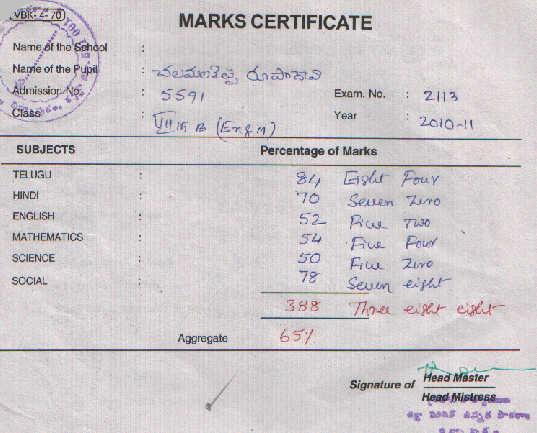 VBK-4-70
MARKS CERTIFICATE
Name of the School :
Name of the Pupil :
Admission No. : 5591 Exam. No. : 2113
Class : VIII B (Eng.M) Year : 2010-11
SUBJECTS Percentage of Marks
TELUGU : 84 Eight Four
HINDI : 70 Seven Zero
ENGLISH : 52 Five Two
MATHEMATICS : 54 Five Four
SCIENCE : 50 Five Zero
SOCIAL : 78 Seven eight
388 Three eight eight
Aggregate 65%
Signature of Head Master
Head Mistress